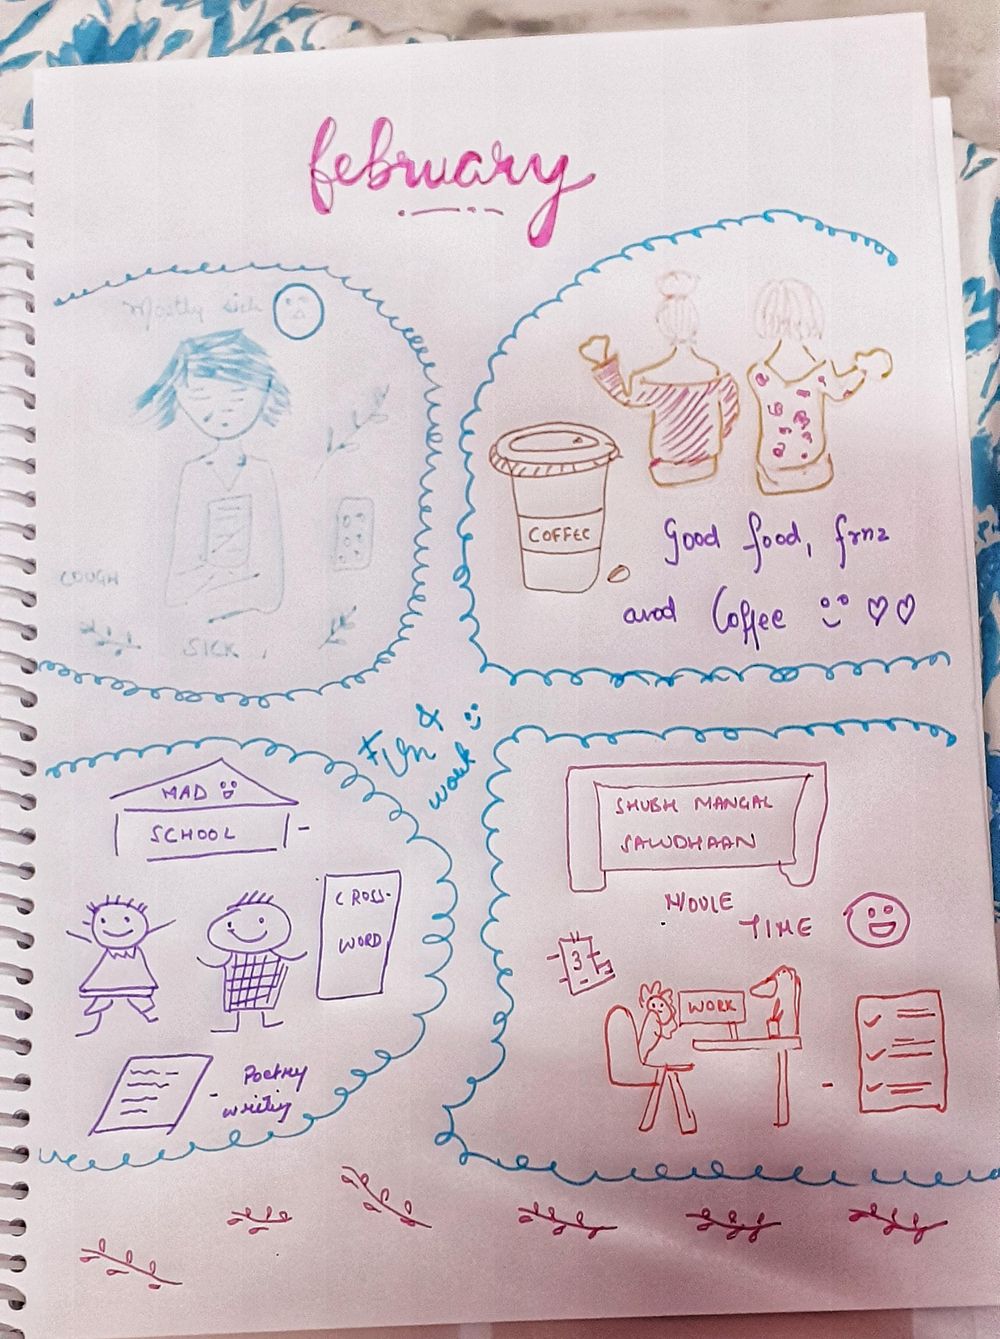 february
Mostly sick
COUGH
SICK
COFFEE
Good food, frnz
and Coffee
Fun &
work
MAD
SCHOOL
CROSS-
WORD
Poetry
writing
SHUBH MANGAL
SAWDHAAN
MOVIE
TIME
3
WORK